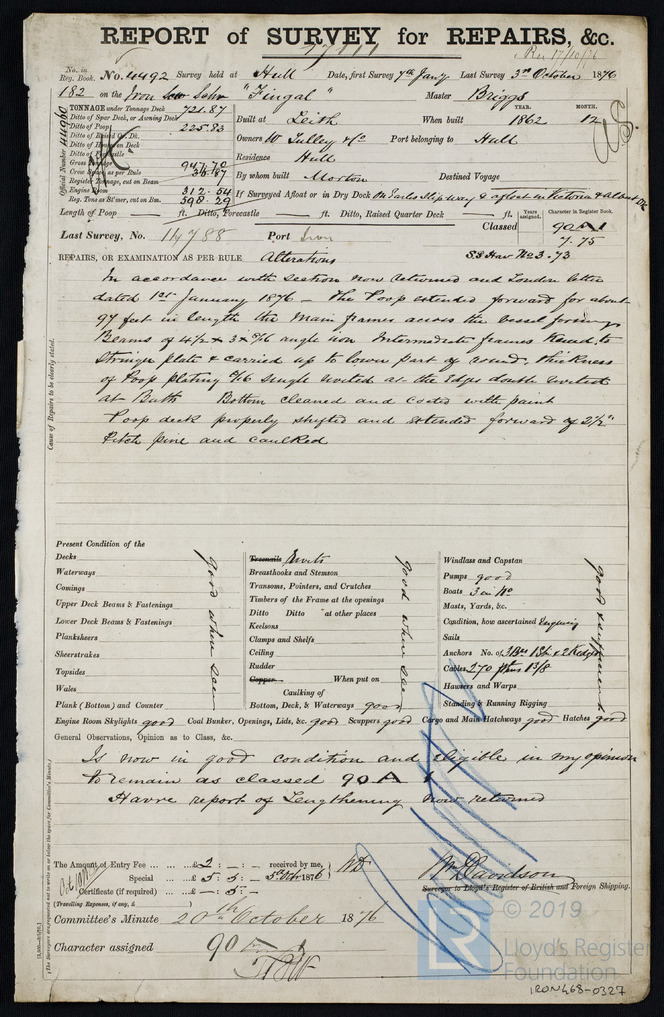 REPORT of SURVEY for REPAIRS, &c.
Rec 17/10/76
No. in Reg. Book. No. 4492 Survey held at Hull Date, first Survey 7th Jany Last Survey 3rd October 1876
182 on the Iron "Fingal" Master Briggs
TONNAGE under Tonnage Deck 721.87
Ditto of Spar Deck, or Awning Deck
Ditto of Poop 225.83
Ditto of Raised Qr. Dk.
Ditto of House on Deck
Ditto of Forecastle
Gross Tonnage 947.70
Crew Space as per Rule
Register Tonnage, cut on Beam
Engine Room 312.54
Reg. Tons as St'mer, cut on Bm. 598.29
Official Number 44960
Built at Leith When built YEAR. 1862 MONTH. 12
Owners W Tulley & Co Port belonging to Hull
Residence Hull
By whom built Morton Destined Voyage
If Surveyed Afloat or in Dry Dock On Earles Slipway & afloat in Victoria & Albert Dk
Length of Poop ft. Ditto, Forecastle ft. Ditto, Raised Quarter Deck ft.
Years assigned. Character in Register Book.
Last Survey, No. 14788 Port Iron Classed 90A1
7.75
REPAIRS, OR EXAMINATION AS PER RULE Alterations SS Hav No 3-73
Cause of Repairs to be clearly stated.
In accordance with section now returned and London letter
dated 1st January 1876 - The Poop extended forward for about
97 feet in length the Main frames across the vessel forming
Beams of 4 1/2 x 3 x 6/16 angle iron Intermediate frames to
Stringer plate & carried up to lower part of round, thickness
of Poop plating 6/16 single riveted at the Edges double riveted
at Butts Bottom cleaned and coated with paint
Poop deck properly shifted and extended forward of 2 1/2"
Pitch pine and caulked
Present Condition of the
Decks
Waterways
Comings
Upper Deck Beams & Fastenings
Lower Deck Beams & Fastenings
Planksheers
Sheerstrakes
Topsides
Wales
Plank (Bottom) and Counter
good where seen
Treenails Rivets
Breasthooks and Stemson
Transoms, Pointers, and Crutches
Timbers of the Frame at the openings
Ditto Ditto at other places
Keelsons
Clamps and Shelfs
Ceiling
Rudder
Copper When put on
Caulking of
Bottom, Deck, & Waterways good
good where see
Windlass and Capstan
Pumps good
Boats 3 in No
Masts, Yards, &c.
Condition, how ascertained Enquiry
Sails
Anchors No. of 3 Brs 1 St & 2 Kedges
Cables 270 fthms 1 3/8
Hawsers and Warps
Standing & Running Rigging
good & sufficient
Engine Room Skylights good Coal Bunker, Openings, Lids, &c. good Scuppers good Cargo and Main Hatchways good Hatches good
General Observations, Opinion as to Class, &c.
Is now in good condition and eligible in my opinion
to remain as classed 90 A 1
Havre report of Lengthening now returned
The Amount of Entry Fee £2 : - : - received by me,
Special £5 : 5 : - 5th Octr 1876
Certificate (if required) - : 5 : -
(Travelling Expenses, if any, £ )
WD
W Davidson
Surveyor to Lloyd's Register of British and Foreign Shipping.
Committee's Minute 20th October 1876
Character assigned 90
© 2019
LR
Lloyd's Register
Foundation
IRON468-0327